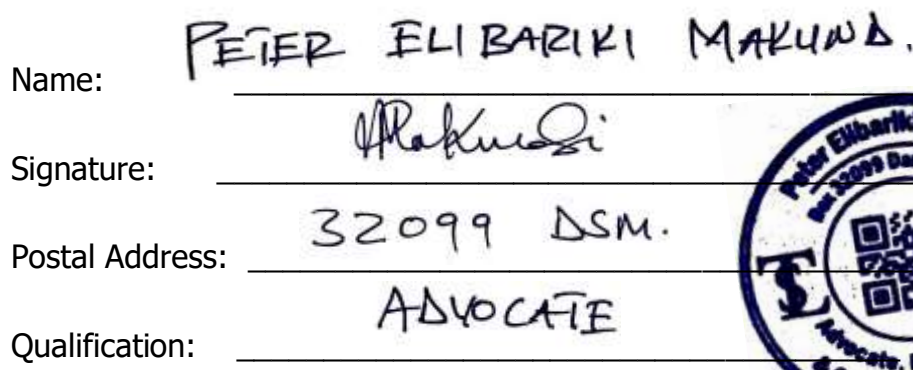 Name: PETER ELIBARIKI MAKUND.
Signature: Makundi
Postal Address: 32099 DSM.
Qualification: ADVOCATE
Peter Elibarik
Box 32099 Da
Advocate,